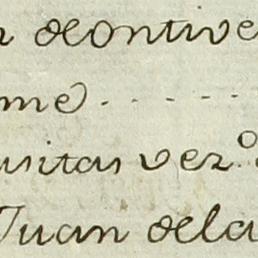 deontive
me
usitas vez.º
Juan dela